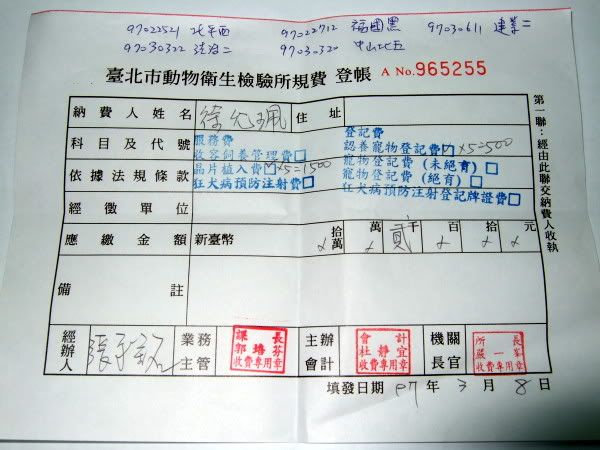 97022521 北平西 97022712 福國黑 97030611 建業二
97030322 汝治二 97030320 中山北五
臺北市動物衛生檢驗所規費 登帳 A No.965255
納費人姓名 徐允珮 住址
科目及代號
依據法規條款
服務費
收容飼養管理費□
晶片植入費☑ x5=1500
狂犬病預防注射費□
登記費
認養寵物登記費☑ x5=500
寵物登記費(未絕育)□
寵物登記費(絕育)□
狂犬病預防注射登記牌證費□
經徵單位
應繳金額 新臺幣 拾萬 萬 貳千 百 拾 元
備註
經辦人 業務主管 課長 郭培芬 收費專用章 主辦會計 會計 杜靜宜 收費專用章 機關長官 所長 嚴一峯 收費專用章
填發日期 97年3月8日
第一聯:經由此聯交納費人收執